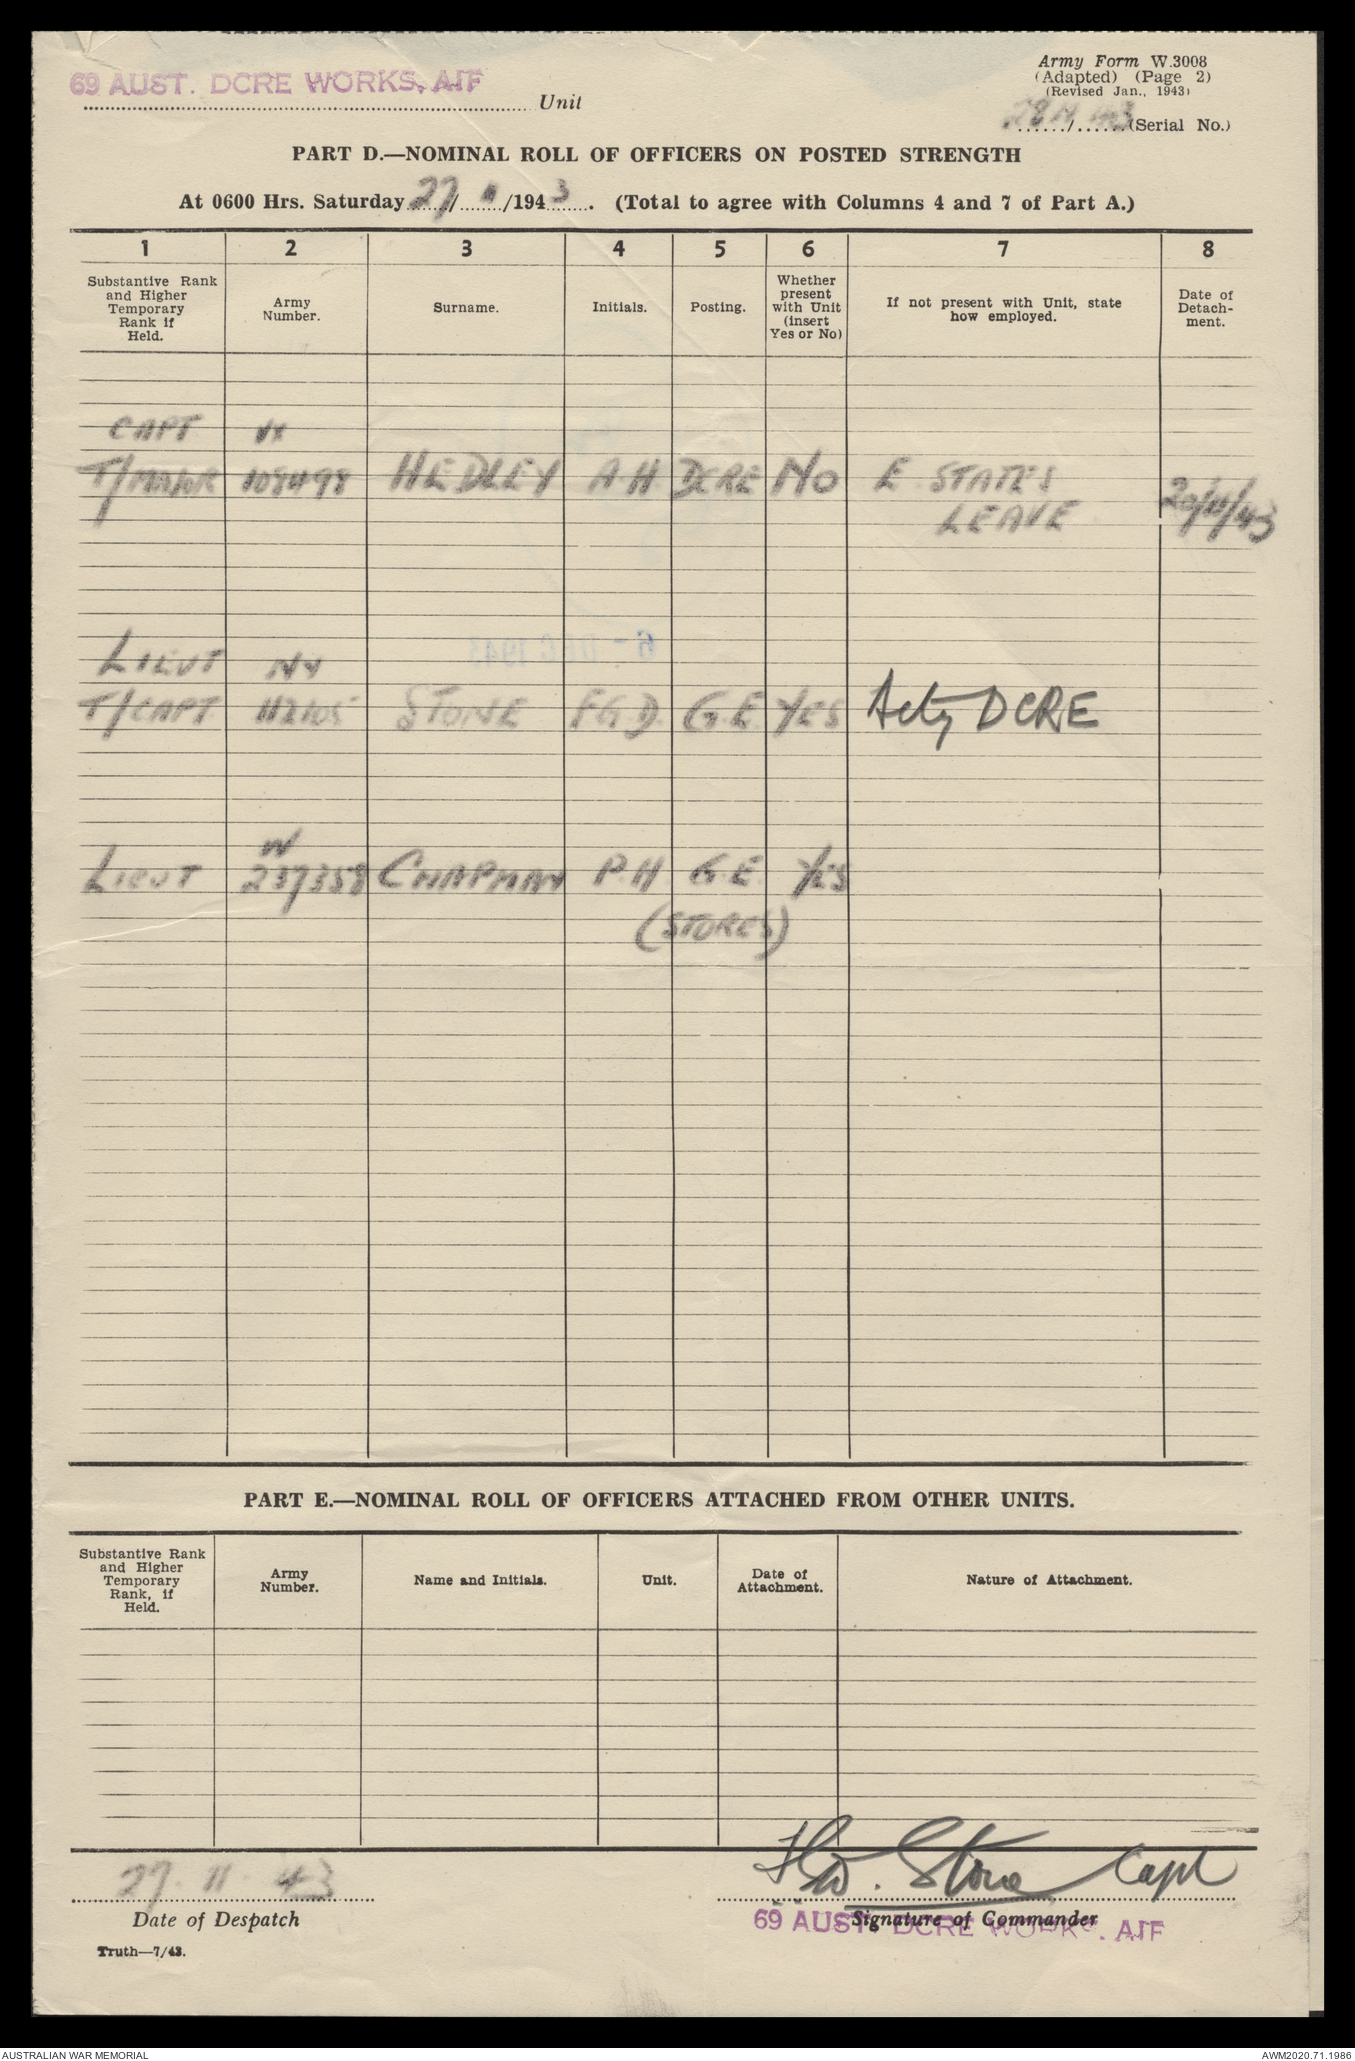 69 AUST. DCRE WORKS, AIF
Unit
Army Form W.3008
(Adapted) (Page 2)
(Revised Jan., 1943)
....../......(Serial No.)
PART D.—NOMINAL ROLL OF OFFICERS ON POSTED STRENGTH
At 0600 Hrs. Saturday 27/11/1943. (Total to agree with Columns 4 and 7 of Part A.)
1 2 3 4 5 6 7 8
Substantive Rank and Higher Temporary Rank if Held. Army Number. Surname. Initials. Posting. Whether present with Unit (insert Yes or No) If not present with Unit, state how employed. Date of Detachment.
CAPT VX
T/MAJOR 108498 HEDLEY A.H. DCRE No E. STATES 20/11/43
LEAVE
6 - DEC 1943
LIEUT NX
T/CAPT 112105 STONE F.G.D. G.E. YES Actg DCRE
LIEUT 237358 CHAPMAN P.H. G.E. YES
(STORES)
PART E.—NOMINAL ROLL OF OFFICERS ATTACHED FROM OTHER UNITS.
Substantive Rank and Higher Temporary Rank, if Held. Army Number. Name and Initials. Unit. Date of Attachment. Nature of Attachment.
27. 11. 43 Stone Capt
Date of Despatch Signature of Commander
69 AUST. DCRE WORKS. AIF
Truth—7/43.
AUSTRALIAN WAR MEMORIAL AWM2020.71.1986